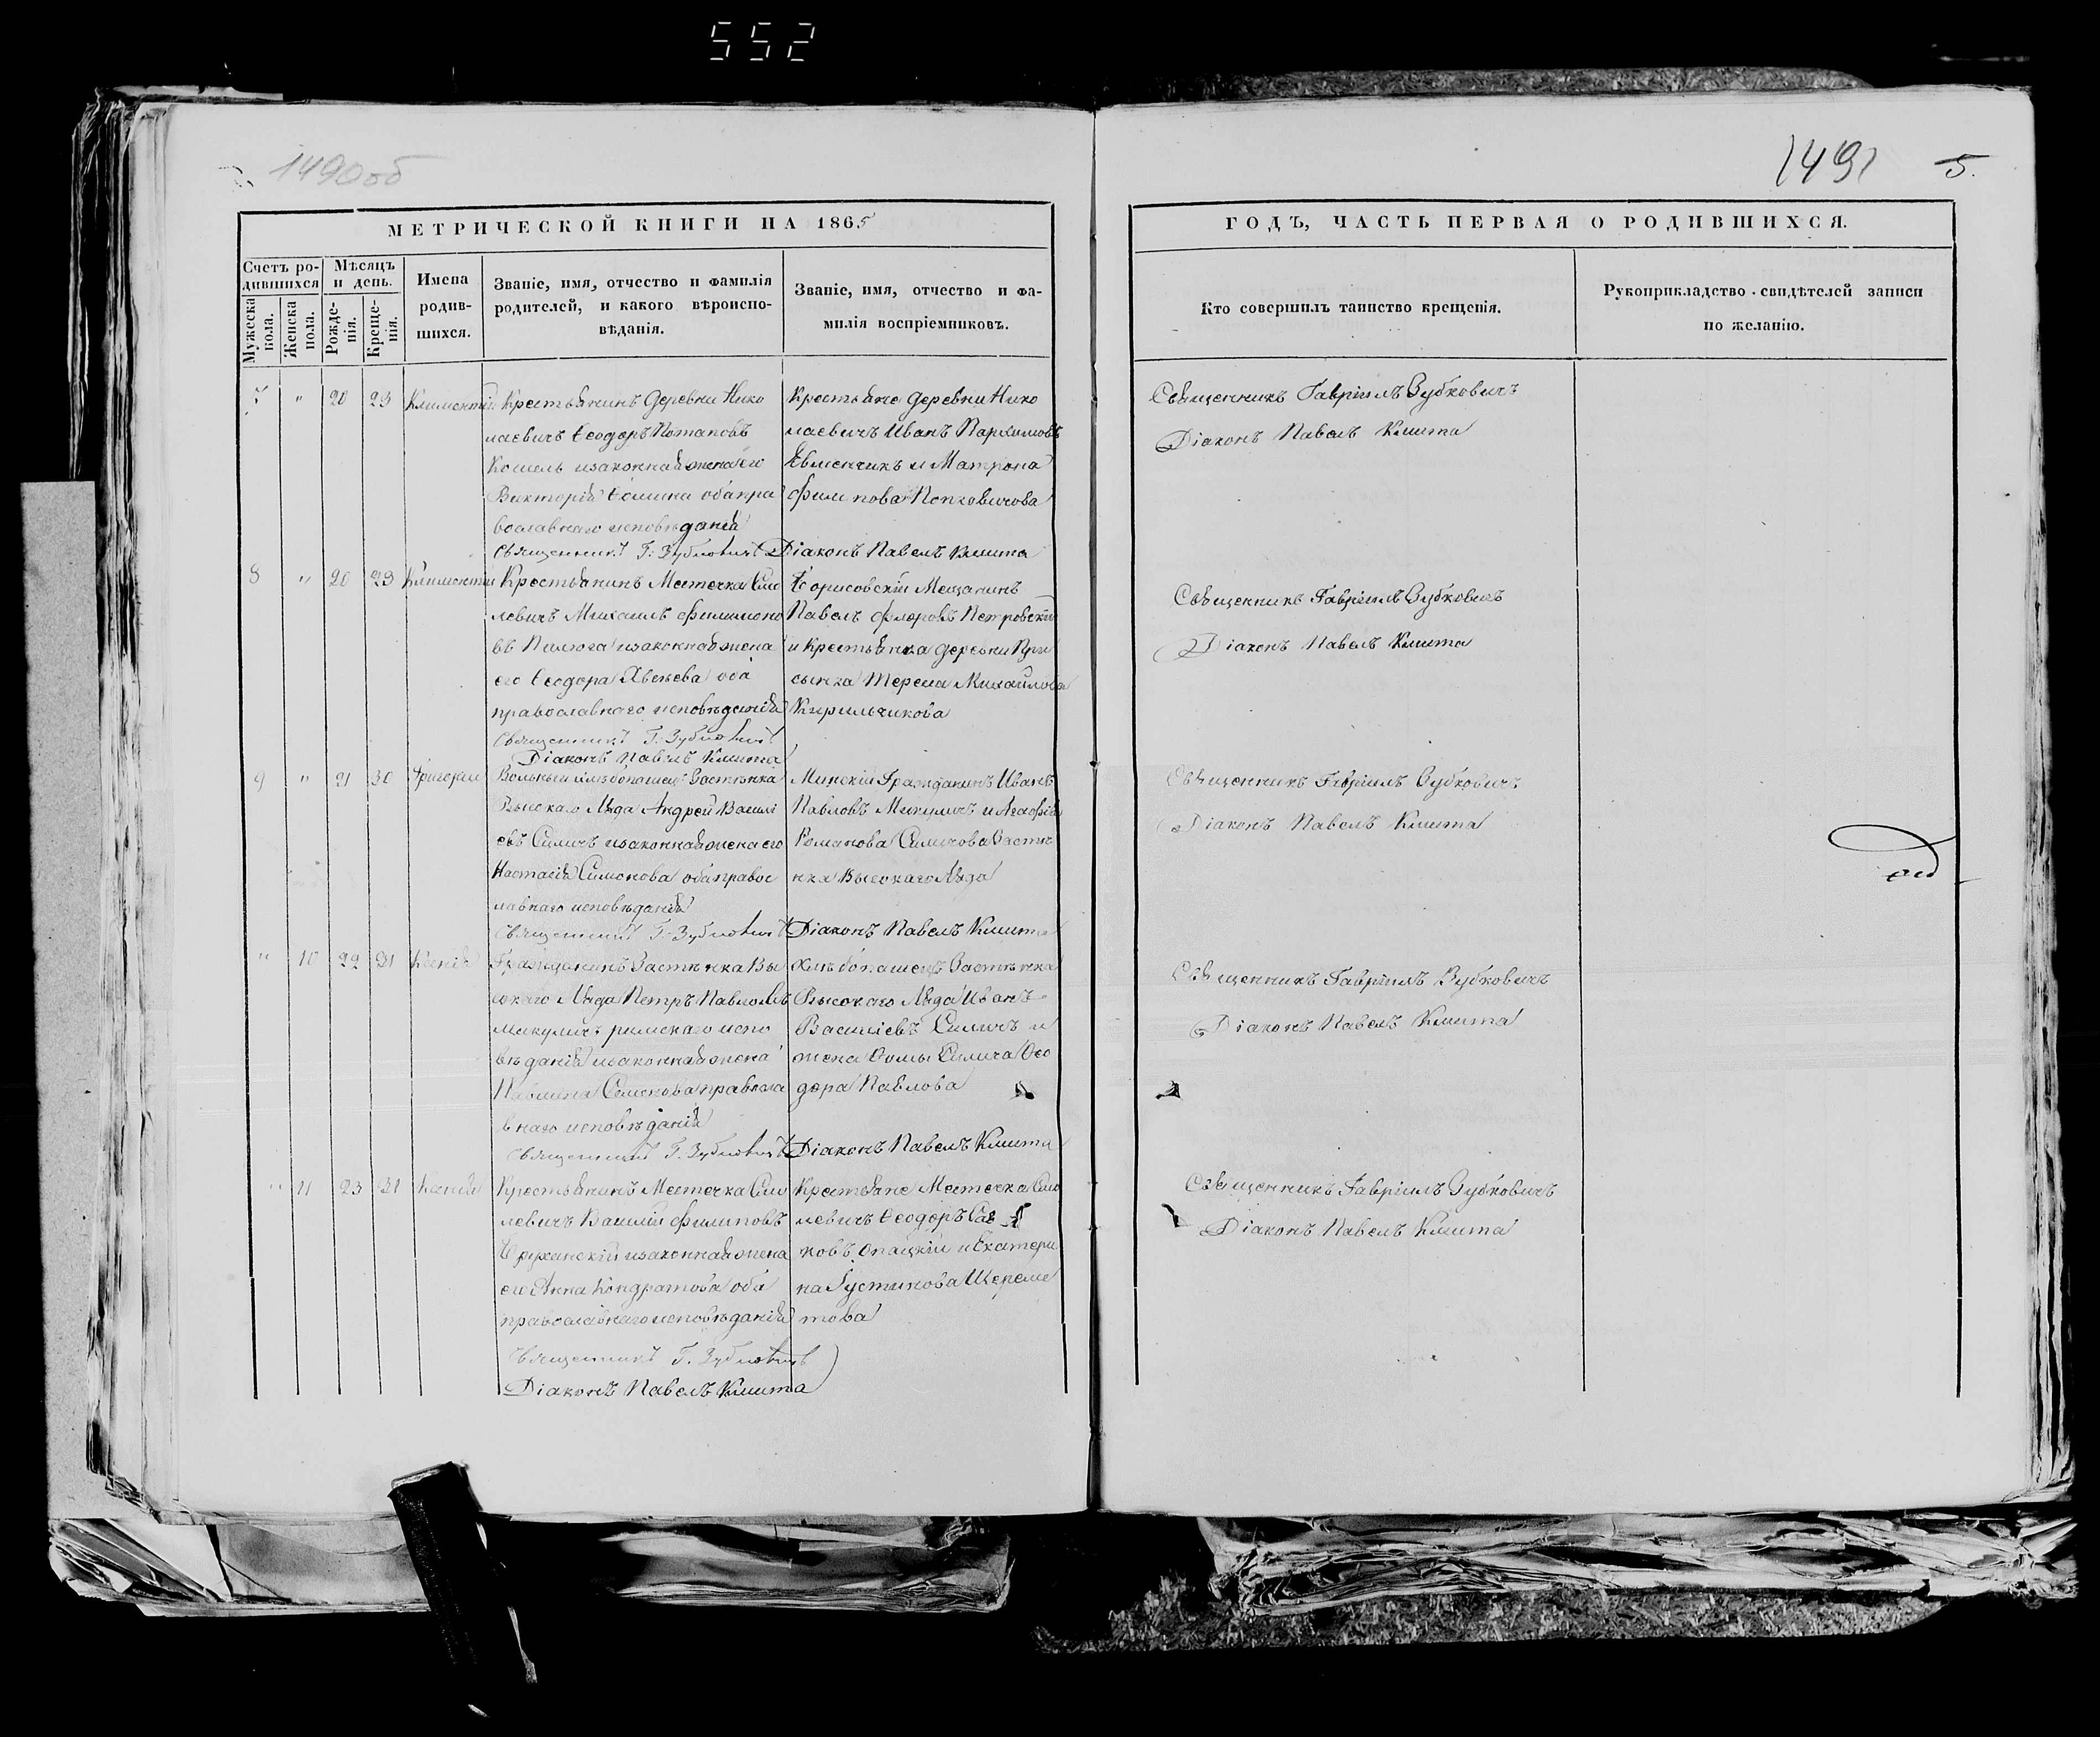 552
1490об
1491 5.
МЕТРИЧЕСКОЙ КНИГИ НА 1865
ГОДЪ, ЧАСТЬ ПЕРВАЯ О РОДИВШИХСЯ.
Счетъ ро-
дившихся
Мужеска
пола.
Женска
пола.
Мѣсяцъ
и день.
Рожде-
нія.
Креще-
нія.
Имена
родив-
шихся.
Званіе, имя, отчество и фамилія
родителей, и какого вѣроиспо-
вѣданія.
Званіе, имя, отчество и фа-
милія воспріемниковъ.
Кто совершилъ таинство крещенія.
Рукоприкладство свидѣтелей записи
по желанію.
7 " 20 23 Климентій
Крестьянинъ деревни Нико
лаевичъ Ѳеодоръ Потаповъ
Кошель и законная жена его
Викторія Ѳомина оба пра
вославнаго исповѣданія
Священникъ Г. Зубковичъ
Крестьяне деревни Нико
лаевичъ Иванъ Пархимовъ
Евменчикъ и Матрона
Филипова
Діаконъ Павелъ Кмита
Священникъ Гавріилъ Зубковичъ
Діаконъ Павелъ Кмита
8 " 20 23 Климентій
Крестьянинъ Местечка Смо
левичъ Михаилъ Филимоно
въ и законная жена
его Ѳеодора оба
православнаго исповѣданія
Священникъ Г. Зубковичъ
Діаконъ Павелъ Кмита
Борисовскій Мещанинъ
Павелъ Флоровъ Петровскій
и Крестьянка деревни
Михайлова
Кирильчикова
Священникъ Гавріилъ Зубковичъ
Діаконъ Павелъ Кмита
9 " 21 30 Григорій
Вольный хлѣбопашецъ Застѣнка
Высокаго Ляда Андрей Василі
евъ Силичъ и законная жена его
Настасія Симонова оба правос
лавнаго исповѣданія
Священникъ Г. Зубковичъ
Минскій Гражданинъ Иванъ
Павловъ Микуличъ и Агафія
Романова Силичова Застѣ
нка Высокаго Ляда
Діаконъ Павелъ Кмита
Священникъ Гавріилъ Зубковичъ
Діаконъ Павелъ Кмита
" 10 22 31 Ксенія
Гражданинъ Застѣнка Вы
сокаго Ляда Петръ Павловъ
Микуличъ римскаго испо
вѣданія и законная жена
Павлина Семенова правосла
внаго исповѣданія
Священникъ Г. Зубковичъ
Хлѣбопашецъ Застѣнка
Высокаго Ляда Иванъ
Василіевъ Силичъ и
жена Ѳомы Силича Ѳео
дора Павлова
Діаконъ Павелъ Кмита
Священникъ Гавріилъ Зубковичъ
Діаконъ Павелъ Кмита
" 11 23 31 Ксенія
Крестьянинъ Местечка Смо
левичъ Василій Филиповъ
и законная жена
его Анна Кондратова оба
православнаго исповѣданія
Священникъ Г. Зубковичъ
Діаконъ Павелъ Кмита
Крестьяне Местечка Смо
левичъ Ѳеодоръ
новъ Опацкій и Екатери
на Густинова Шереме
това
Священникъ Гавріилъ Зубковичъ
Діаконъ Павелъ Кмита